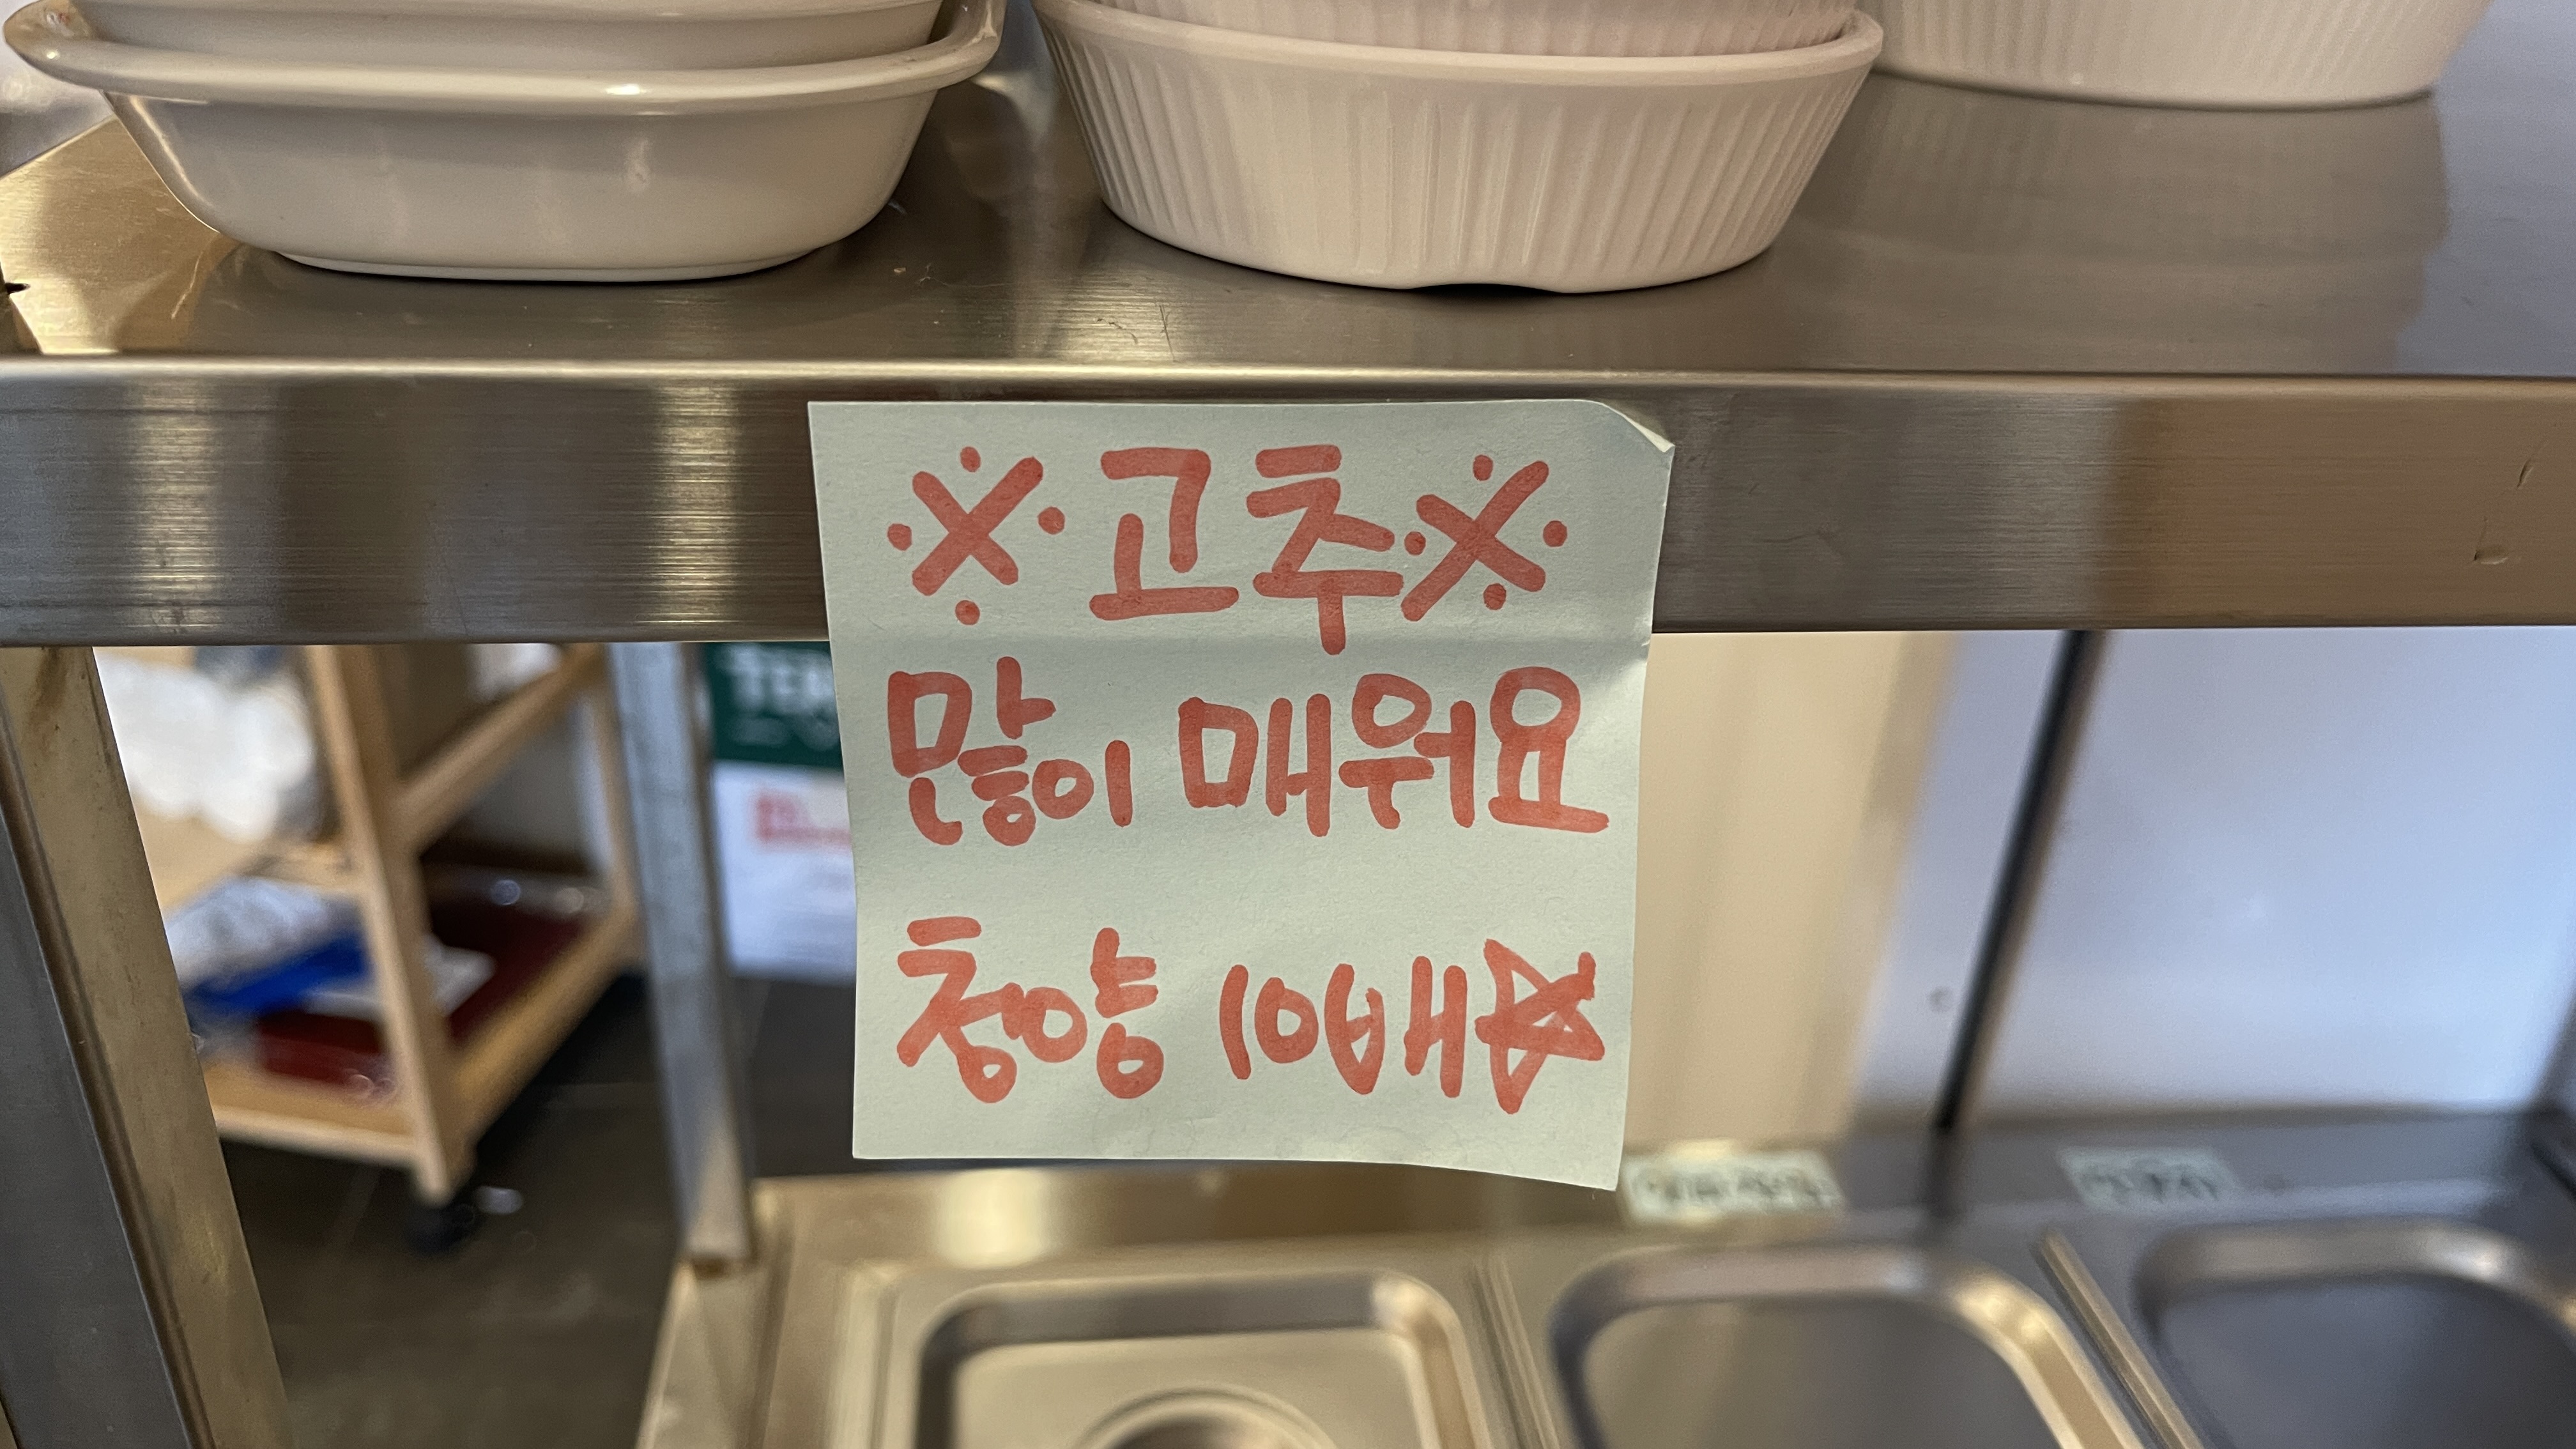 ※고추※
많이 매워요
청양 10배☆